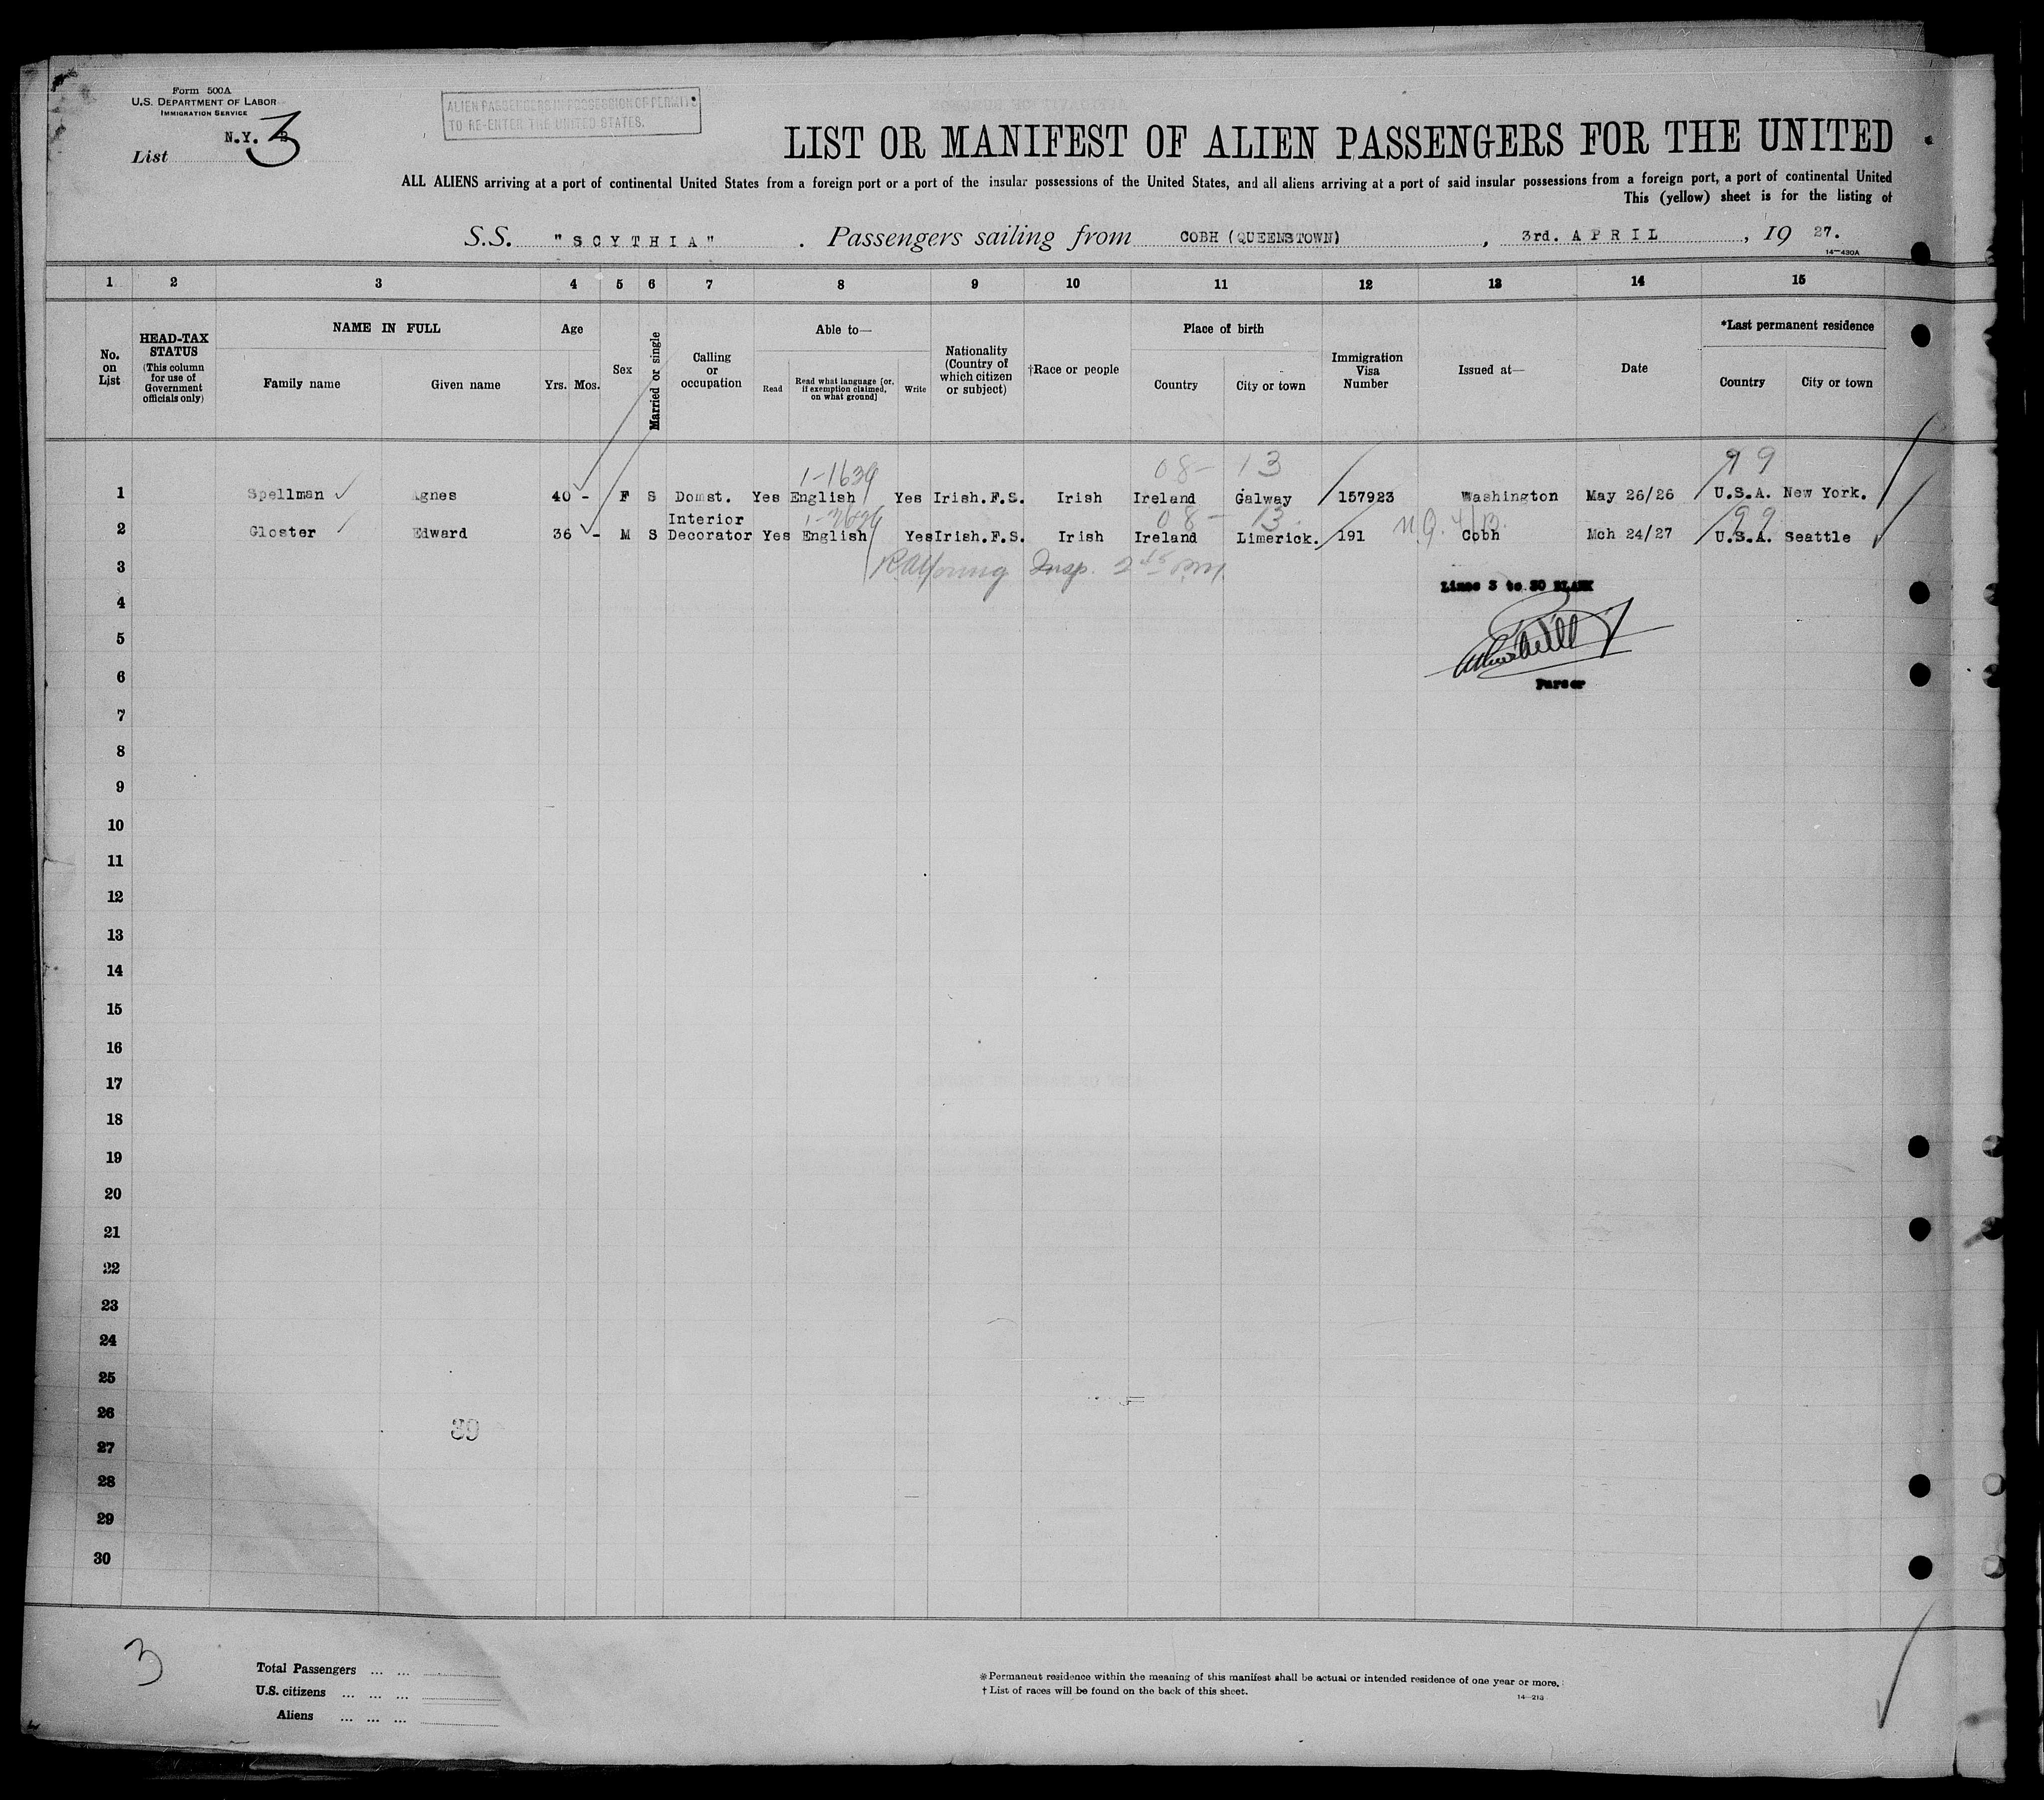 Form 500A
U.S. DEPARTMENT OF LABOR
IMMIGRATION SERVICE
N.Y. 3
List
ALIEN PASSENGERS IN POSSESSION OF PERMITS
TO RE-ENTER THE UNITED STATES.
LIST OR MANIFEST OF ALIEN PASSENGERS FOR THE UNITED
ALL ALIENS arriving at a port of continental United States from a foreign port or a port of the insular possessions of the United States, and all aliens arriving at a port of said insular possessions from a foreign port, a port of continental United
This (yellow) sheet is for the listing of
S.S. "SCYTHIA". Passengers sailing from COBH (QUEENSTOWN), 3rd. APRIL, 19 27.
14—430A
1 2 3 4 5 6 7 8 9 10 11 12 13 14 15
No. on List
HEAD-TAX STATUS (This column for use of Government officials only)
NAME IN FULL
Family name Given name
Age
Yrs. Mos.
Sex
Married or single
Calling or occupation
Able to—
Read
Read what language [or, if exemption claimed, on what ground]
Write
Nationality (Country of which citizen or subject)
†Race or people
Place of birth
Country City or town
Immigration Visa Number
Issued at—
Date
*Last permanent residence
Country City or town
08- 13 99
1 Spellman Agnes 40 - F S Domst. Yes English Yes Irish.F.S. Irish Ireland Galway 157923 Washington May 26/26 U.S.A. New York.
08- 13 99
2 Gloster Edward 36 - M S Interior Decorator Yes English Yes Irish.F.S. Irish Ireland Limerick. 191 Cobh Mch 24/27 U.S.A. Seattle
3
Insp. 2 45 P.M.
Lines 3 to 30 BLANK
4
5
6
Purser
7
8
9
10
11
12
13
14
15
16
17
18
19
20
21
22
23
24
25
26
39
27
28
29
30
3
Total Passengers ... ...
U.S. citizens ... ... ...
Aliens ... ... ...
*Permanent residence within the meaning of this manifest shall be actual or intended residence of one year or more.
† List of races will be found on the back of this sheet.
14—213